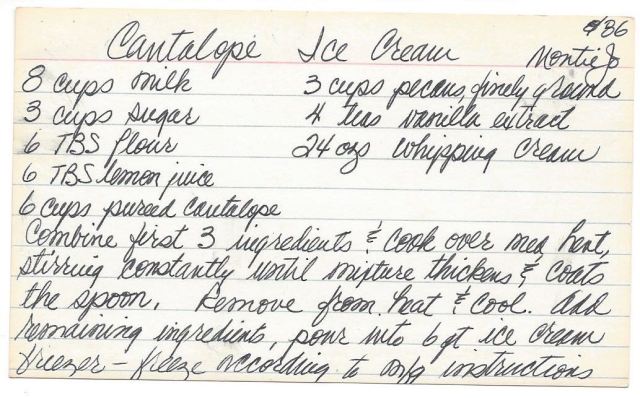 8/86
Cantalope Ice Cream
Montie Jo
8 cups milk 3 cups pecans, finely ground
3 cups sugar 4 teas vanilla extract
6 TBS flour 24 ozs whipping cream
6 TBS lemon juice
6 cups pureed cantalope
Combine first 3 ingredients & cook over med heat,
stirring constantly until mixture thickens & coats
the spoon. Remove from heat & cool. Add
remaining ingredients, pour into 6 qt ice cream
freezer - freeze according to mfg instructions